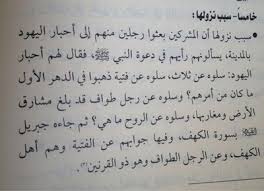 خامسًا - سبب نزولها:
• سبب نزولها أن المشركين بعثوا رجلين منهم إلى أحبار اليهود
بالمدينة، يسألونهم رأيهم في دعوة النبي ﷺ، فقال لهم أحبار
اليهود: سلوه عن ثلاث، سلوه عن فتية ذهبوا في الدهر الأول
ما كان من أمرهم؟ وسلوه عن رجل طواف قد بلغ مشارق
الأرض ومغاربها، وسلوه عن الروح ما هي؟ ثم جاءه جبريل
بسورة الكهف، وفيها جوابهم عن الفتية وهم أهل
الكهف، وعن الرجل الطواف وهو ذو القرنين